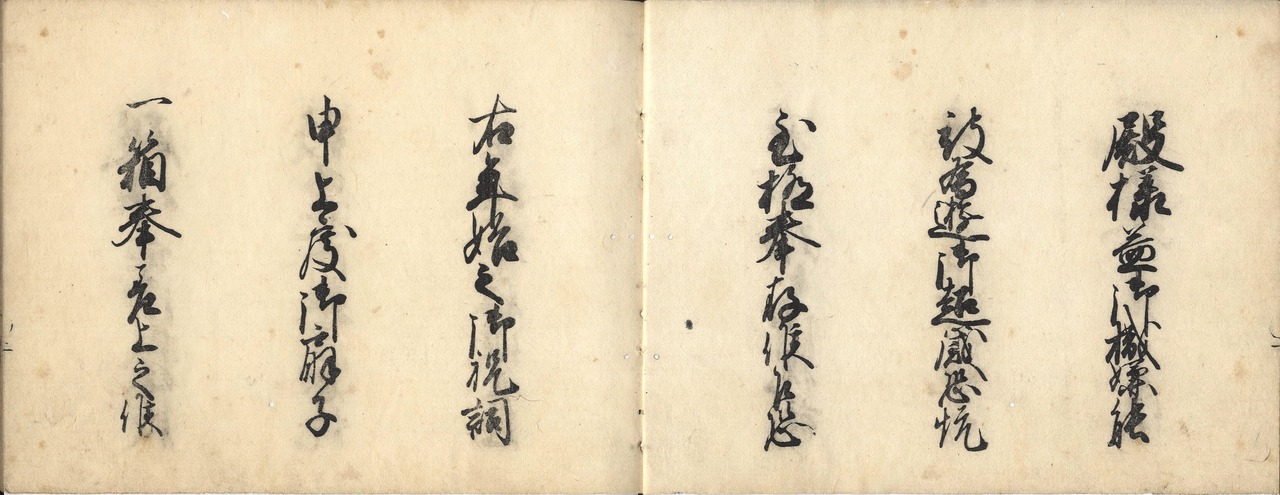 殿様益御機嫌能
被為遊御超歳恐悦
至極奉存候乍恐
右年始之御祝詞
申上度御扇子
一箱奉差上之候